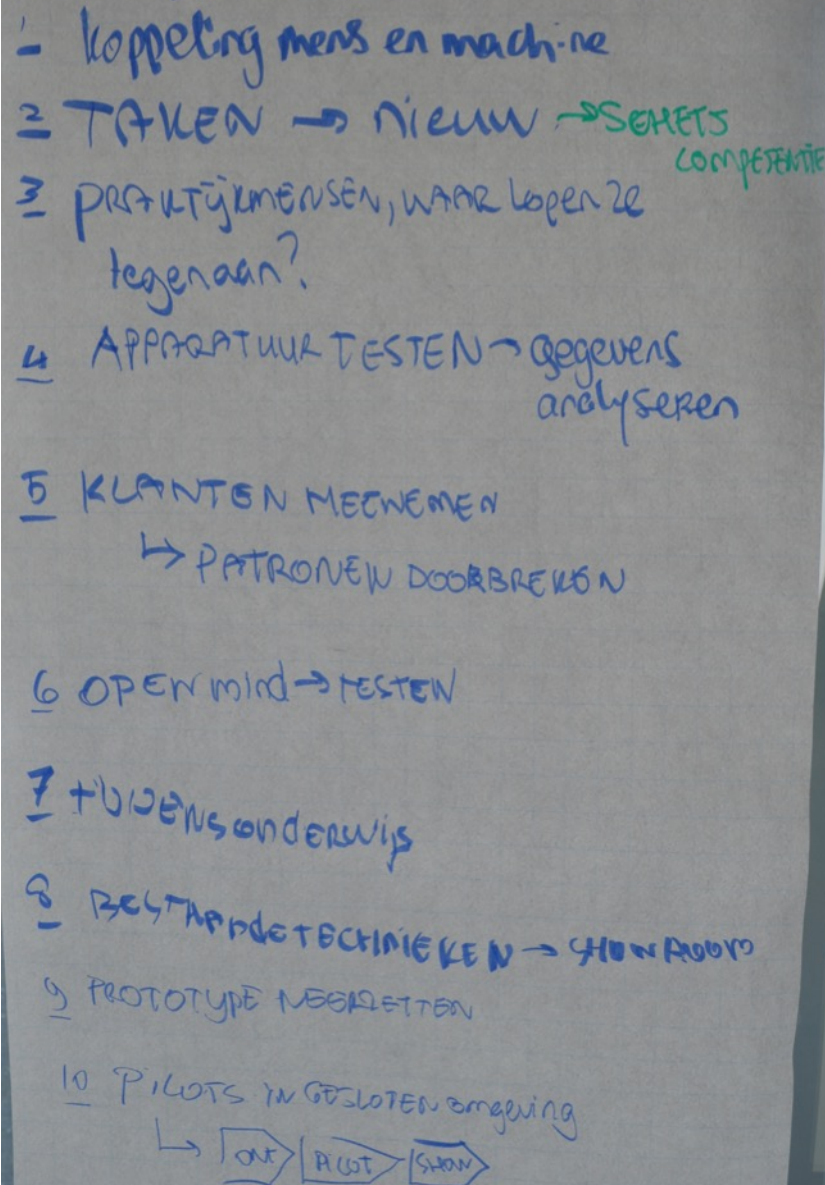 1 Koppeling mens en machine
2 TAKEN → nieuw → SCHETS
COMPETENTIE
3 PRAKTIJKMENSEN, WAAR lopen ze
tegenaan?
4 APPARATUUR TESTEN → gegevens
analyseren
5 KLANTEN MEENEMEN
↳ PATRONEN DOORBREKEN
6 OPEN mind → TESTEN
7 TIJDENS onderwijs
8 BESTAANDE TECHNIEKEN → SHOWROOM
9 PROTOTYPE NEERZETTEN
10 PILOTS IN GESLOTEN omgeving
↳ ONT PILOT SHOW